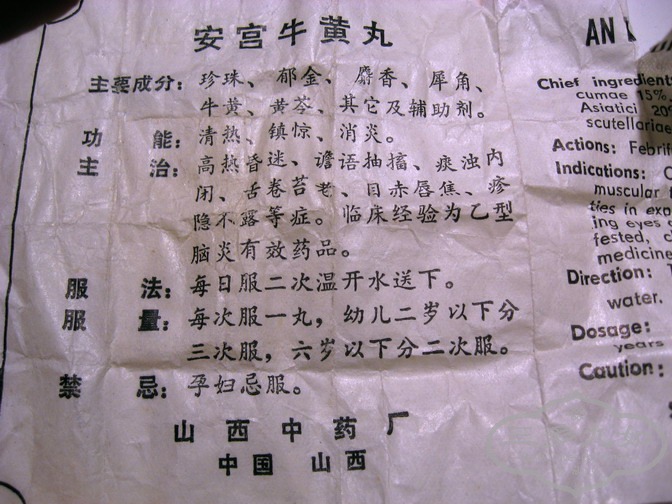 安宫牛黄丸
主要成分：珍珠、郁金、麝香、犀角、
牛黄、黄芩、其它及辅助剂。
功能：清热、镇惊、消炎。
主治：高热昏迷、谵语抽搐、痰浊内
闭、舌卷苔老、目赤唇焦、疹
隐不露等症。临床经验为乙型
脑炎有效药品。
服法：每日服二次温开水送下。
服量：每次服一丸，幼儿二岁以下分
三次服，六岁以下分二次服。
禁忌：孕妇忌服。
山西中药厂
中国 山西
AN
Chief ingredient
cumae 15%,
Asiatici 20%
scutellariae
Actions: Febrif
Indications: C
muscular
ties in ex
ing eyes
fested, c
medicine
Direction:
water.
Dosage:
years
Caution: